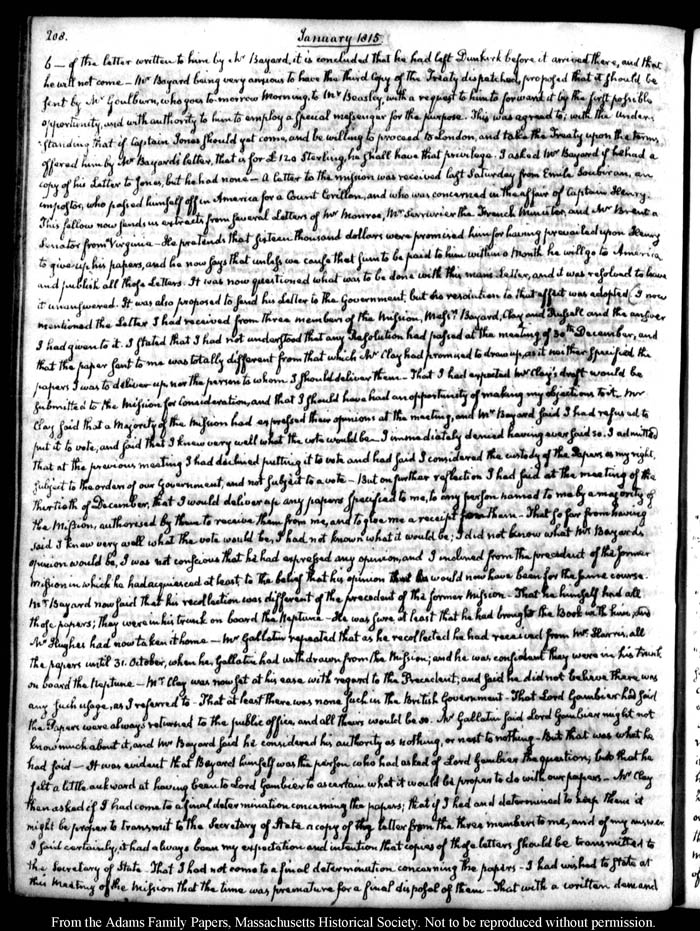 208.
January 1815
6 — of the letter written to him by Mr Bayard, it is concluded that he had left Dunkirk before it arrived there, and that
he will not come — Mr Bayard being very anxious to have the third Copy of the Treaty dispatched, proposed that it should be
sent by Mr Goulburn, who goes to-morrow Morning, to Mr Beasley, with a request to him to forward it by the first possible
opportunity, and with authority to him to employ a special messenger for the purpose. This was agreed to; with the under-
standing that if Captain Jones should yet come, and be willing to proceed to London, and take the Treaty upon the terms
offered him by Mr Bayard's letter, that is for £120 Sterling, he shall have that privilege. I asked Mr Bayard if he had a
copy of his Letter to Jones, but he had none — A letter to the mission was received last Saturday from Emile Soubiran, an
impostor, who passed himself off in America for a Count Crillon, and who was concerned in the affair of Captain Henry.
This fellow now sends us extracts from several Letters of Mr Monroe, Mr Serrurier the French Minister, and Mr Brent a
Senator from Virginia — He pretends that sixteen thousand dollars were promised him for having prevailed upon Henry
to give up his papers, and he now says that unless we cause that sum to be paid to him within a Month he will go to America
and publish all those Letters. It was now questioned what was to be done with this man's Letter, and it was resolved to leave
it unanswered. It was also proposed to send his Letter to the Government, but no resolution to that effect was adopted. I now
mentioned the Letter I had received from three members of the Mission, Messrs. Bayard, Clay and Russell and the answer
I had given to it. I stated that I had not understood that any Resolution had passed at the meeting of 30th December, and
that the paper sent to me was totally different from that which Mr Clay had promised to draw up, as it neither specified the
papers I was to deliver up, nor the person to whom I should deliver them — That I had expected Mr Clay's draft would be
submitted to the Mission for Consideration, and that I should have had an opportunity of making my objections to it. Mr
Clay said that a Majority of the Mission had expressed their opinions at the meeting, and Mr Bayard said I had refused to
put it to vote, and said that I knew very well what the vote would be — I immediately denied having ever said so. I admitted
that at the previous meeting I had declined putting it to vote and had said I considered the custody of the Papers as my right,
subject to the orders of our Government, and not subject to a vote — But on further reflection I had said at the meeting of the
thirtieth of December, that I would deliver up any papers specified to me, to any person named to me by a majority of
the Mission, authorised by them to receive them from me, and to give me a receipt for them — That so far from having
said I knew very well what the vote would be, I had not known what it would be; I did not know what Mr Bayard's
opinion would be, I was not conscious that he had expressed any opinion, and I inclined from the precedent of the former
mission in which he had acquiesced at least to the belief that his opinion would now have been for the same course.
Mr Bayard now said that his recollection was different of the precedent of the former Mission — That he himself had all
those papers; they were in his trunk on board the Neptune — He was sure at least that he had brought the Book with him, and
Mr Hughes had now taken it home — Mr Gallatin repeated that as he recollected he had received from Mr Harris, all
the papers until 31. October, when he, Gallatin had withdrawn from the Mission; and he was confident they were in his trunk
on board the Neptune — Mr Clay was now set at his ease with regard to the Precedent; and said he did not believe there was
any such usage, as I referred to — That at least there was none such in the British Government — That Lord Gambier had said
the Papers were always returned to the public office, and all theirs would be so. Mr Gallatin said Lord Gambier might not
know much about it, and Mr Bayard said he considered his authority as nothing, or next to nothing — But that was what he
had said — It was evident that Bayard himself was the person who had asked of Lord Gambier the question; but that he
felt a little awkward at having been to Lord Gambier to ascertain what it would be proper to do with our papers — Mr Clay
then asked if I had come to a final determination concerning the papers; that if I had and determined to keep them it
might be proper to transmit to the Secretary of State a copy of the letter from the three members to me, and of my answer.
I said certainly, it had always been my expectation and intention that copies of those letters should be transmitted to
the Secretary of State. That I had not come to a final determination concerning the papers — I had wished to state at
this Meeting of the Mission that the time was premature for a final disposal of them — That with a written demand
From the Adams Family Papers, Massachusetts Historical Society. Not to be reproduced without permission.